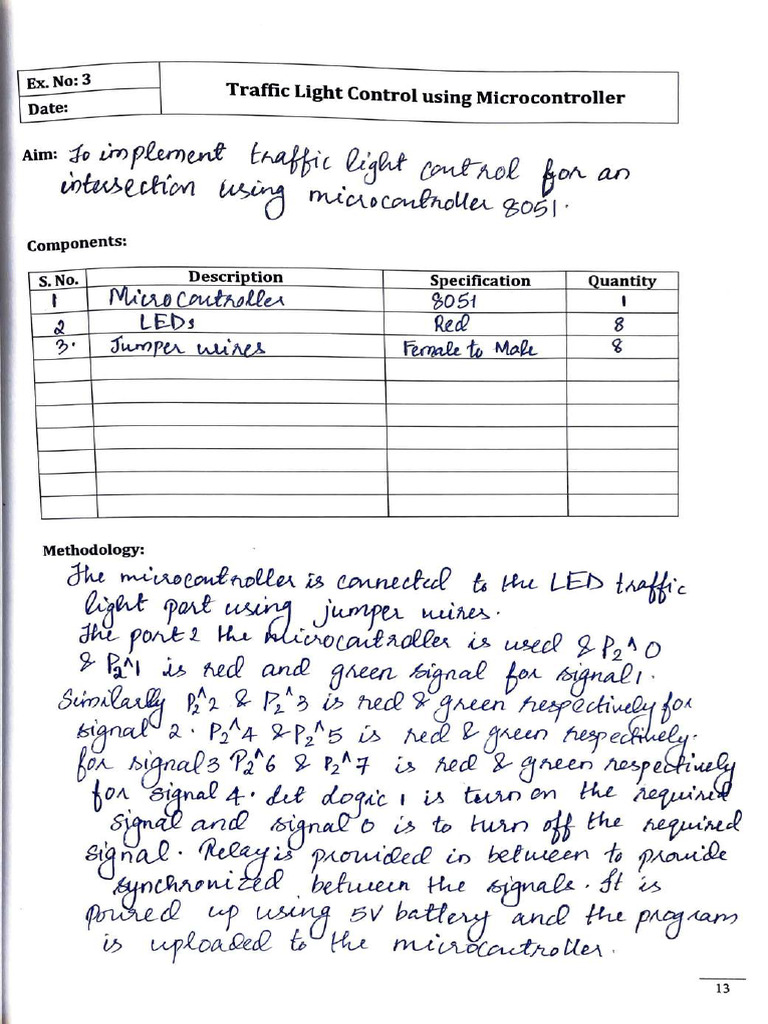 Ex. No: 3
Date:
Traffic Light Control using Microcontroller
Aim: To implement traffic light control for an
intersection using microcontroller 8051.
Components:
S. No. Description Specification Quantity
1 Microcontroller 8051 1
2 LEDs Red 8
3. Jumper wires Female to Male 8
Methodology:
The microcontroller is connected to the LED traffic
light port using jumper wires.
The port 2 the microcontroller is used & P2^0
& P2^1 is red and green signal for signal 1.
Similarly P2^2 & P2^3 is red & green respectively for
signal 2. P2^4 & P2^5 is red & green respectively.
for signal 3 P2^6 & P2^7 is red & green respectively
for signal 4. Let Logic 1 is turn on the required
signal and signal 0 is to turn off the required
signal. Relay is provided in between to provide
synchronized between the signals. It is
poured up using 5V battery and the program
is uploaded to the microcontroller.
13